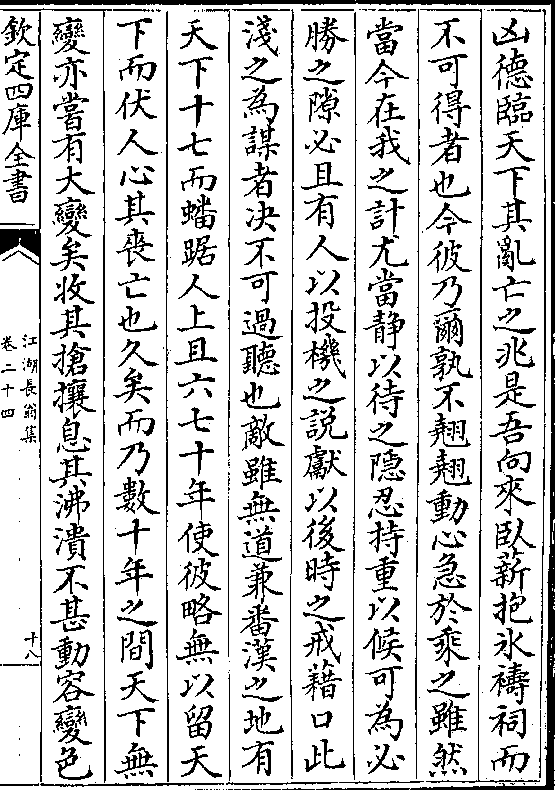 凶德臨天下其亂亡之兆是吾向來臥薪抱氷禱祠而
不可得者也今彼乃爾孰不翹翹動心急於乘之雖然
當今在我之計尤當静以待之隠忍持重以候可為必
勝之隙必且有人以投機之説獻以後時之戒藉口此
淺之為謀者决不可過聽也敵雖無道兼番漢之地有
天下十七而蟠踞人上且六七十年使彼略無以留天
下而伏人心其喪亡也久矣而乃數十年之間天下無
變亦嘗有大變矣收其搶攘息其沸潰不甚動容變色
欽定四庫全書
江湖長翁集
卷二十四
十八